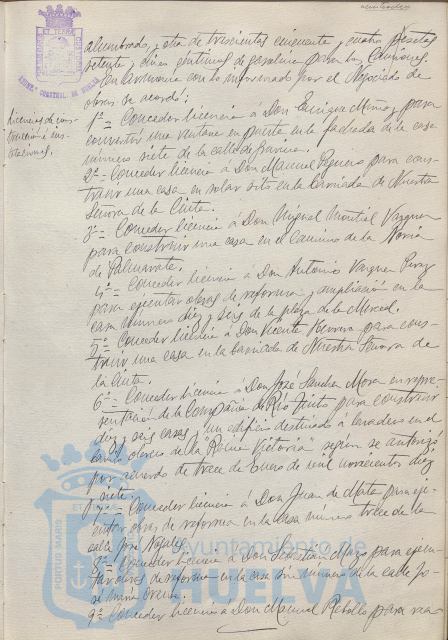 alumbrado, y otra de trescientas cincuenta y cuatro pesetas
setenta y cinco centimos de gasolina para los Camiones.
En armonia con lo informado por el Negociado de
obras se acordó:
Licencias de cons-
trucción é ins-
talaciones.
1º = Conceder licencia á Don Enrique Muñoz para
convertir una ventana en puerta en la fachada de la casa
número siete de la calle
2º = Conceder licencia á Don Manuel Seguero para cons-
truir una casa en solar sito en la barriada de Nuestra
Señora de la Cinta.
3º = Conceder licencia á Don Miguel Montiel Vazquez
para construir una casa en el camino de la Noria
de
4º = Conceder licencia á Don Antonio Vazquez Perez
para ejecutar obras de reforma y ampliación en la
casa número diez y seis de la plaza de la Merced.
5º = Conceder licencia á Don Vicente Herrera para cons-
truir una casa en la barriada de Nuestra Señora de
la Cinta.
6º = Conceder licencia á Don José Sanchez Mora en repre-
sentación de la Compañia de Rio Tinto para construir
diez y seis casas y un edificio destinado á lavadero en el
barrio obrero de la "Reina Victoria" según se autorizó
por acuerdo de trece de Enero de mil novecientos diez
y siete.
7º = Conceder licencia á Don Juan de Mata para eje-
cutar obras de reforma en la casa número trece de la
calle José Nogales.
8º = Conceder licencia á Don Sebastian Mazo para ejecu-
tar obras de reforma en la casa sin número de la calle Jo-
sé
9º = Conceder licencia á Don Manuel Rebollo para rea-
Ayuntamiento de
HUELVA
PORTUS MARIS